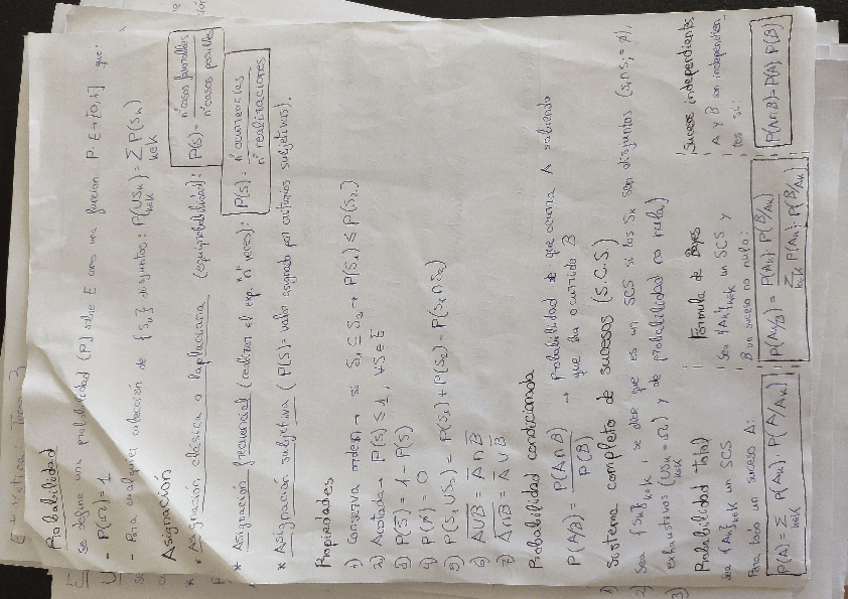 Probabilidad
Se define una probabilidad (P) sobre E como una función P: E→[0,1] que:
- P(Ω)=1
- Para cualquier colección de {Sₖ} disjuntos: P(∪Sₖ) = Σ P(Sₖ)
k∈K k∈K
Asignación
* Asignación clásica o laplaciana (equiprobabilidad): P(S) = nº casos favorables / nº casos posibles
* Asignación frecuencial (realizar el exp. "n" veces): P(S) = nº ocurrencias / nº realizaciones
* Asignación subjetiva (P(S)= valor asignado por criterios subjetivos).
Propiedades
1) Conserva orden → si S₁ ⊆ S₂ → P(S₁) ≤ P(S₂)
2) Acotada → P(S) ≤ 1, ∀S∈E
3) P(S̅) = 1 - P(S)
4) P(∅) = 0
5) P(S₁∪S₂) = P(S₁) + P(S₂) - P(S₁∩S₂)
6) A∪B = A̅ ∩ B̅
7) A∩B = A̅ ∪ B̅
Probabilidad condicionada
P(A/B) = P(A∩B) / P(B) → Probabilidad de que ocurra A sabiendo
que ha ocurrido B
Sistema completo de sucesos (S.C.S)
Sea {Sₖ}k∈K, se dice que es un SCS si los Sₖ son disjuntos (Sᵢ∩Sⱼ = ∅),
exhaustivos (∪Sₖ = Ω) y de probabilidad no nula)
k∈K
Probabilidad total
Sea {Aₖ}k∈K un SCS
Para todo un suceso A:
P(A) = Σ P(Aₖ) · P(A/Aₖ)
k∈K
Fórmula de Bayes
Sea {Aₖ}k∈K un SCS y
B un suceso no nulo:
P(Aₖ/B) = P(Aₖ) · P(B/Aₖ) / Σ P(Aₖ) · P(B/Aₖ)
k∈K
Sucesos independientes
A y B son independien
tes si:
P(A∩B) = P(A) · P(B)